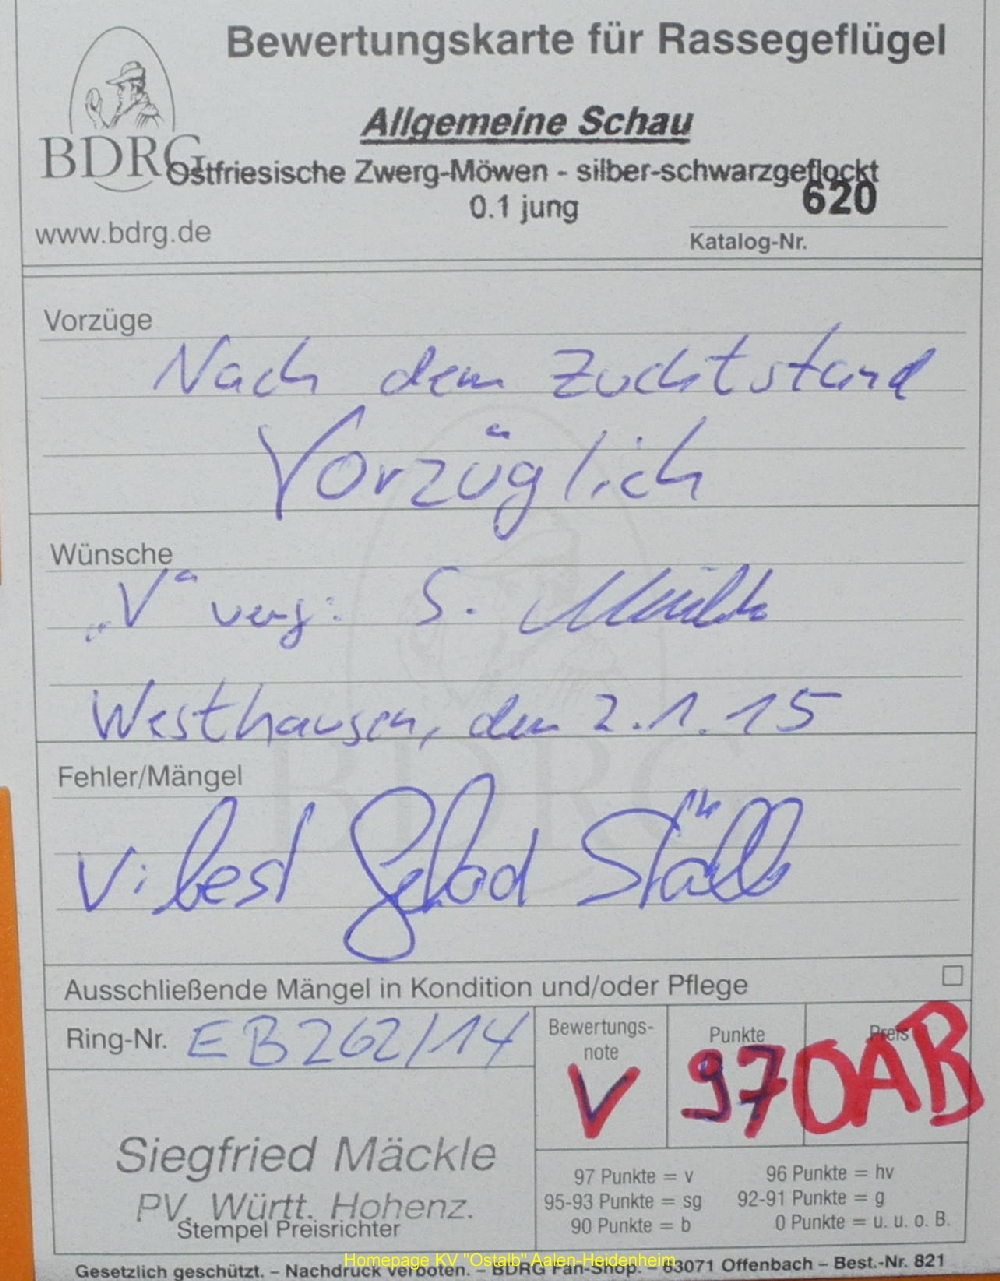 Bewertungskarte für Rassegeflügel
Allgemeine Schau
BDRG
Ostfriesische Zwerg-Möwen - silber-schwarzgeflockt
0.1 jung
620
www.bdrg.de
Katalog-Nr.
Vorzüge
Nach dem Zuchtstand
Vorzüglich
Wünsche
„V“ verg: S.
Westhausen, den 2.1.15
Fehler/Mängel
V: best
Ausschließende Mängel in Kondition und/oder Pflege
Ring-Nr. EB262/14
Bewertungs-
note
Punkte
Preis
V 97 OAB
Siegfried Mäckle
PV. Württ. Hohenz.
Stempel Preisrichter
97 Punkte = v 96 Punkte = hv
95-93 Punkte = sg 92-91 Punkte = g
90 Punkte = b 0 Punkte = u. u. o. B.
Homepage KV "Ostalb" Aalen-Heidenheim
Gesetzlich geschützt. – Nachdruck verboten. – BDRG Fan-Shop. – 63071 Offenbach – Best.-Nr. 821